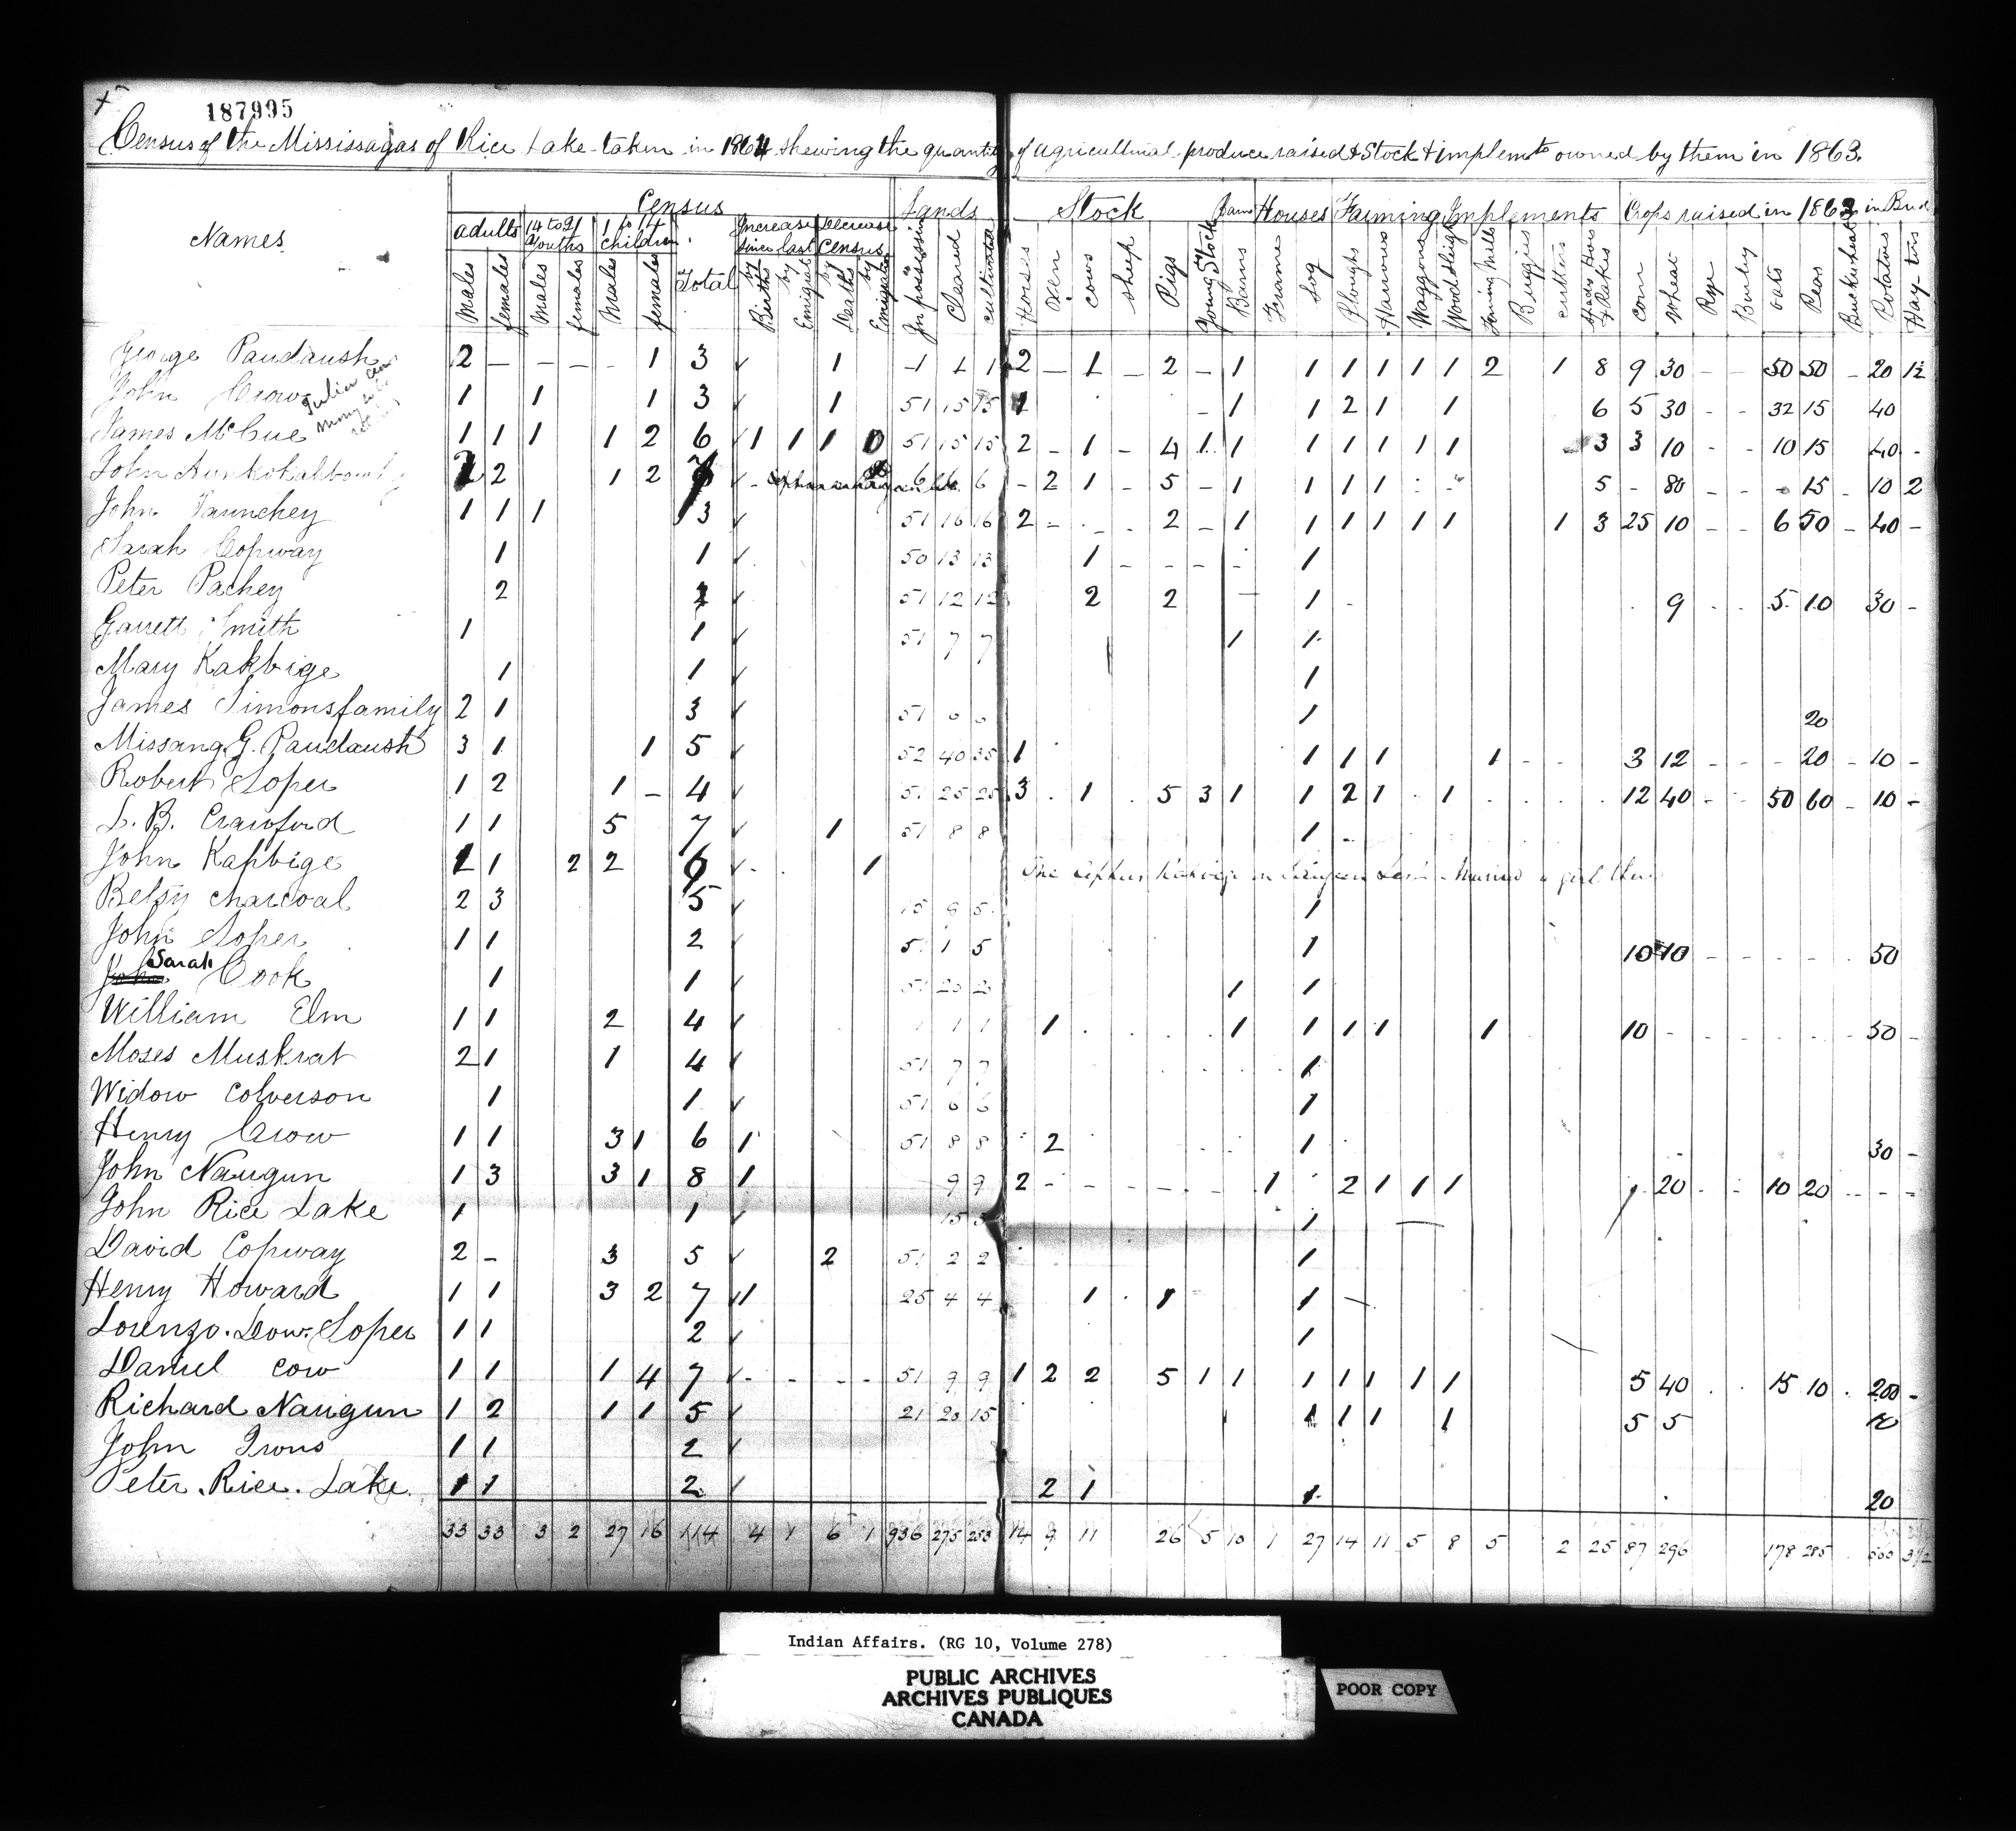 187995
Census of the Mississagas of Rice Lake taken in 1864 shewing the quantity of agricultural produce raised & Stock & implemts owned by them in 1863.
Names Census Lands Stock Barns Houses Farming Implements Crops raised in 1863 in Bus
adults 14 to 21 Youths 1 to 14 children Total Increase since last Decrease Census
Males females Males females Males females by Births by Emigrat by Deaths by Emigration In possession Cleared cultivated Horses Oxen cows sheep Pigs Young Stock Barns Frame Log Ploughs Harrows Waggons Woodsleigh Faning Mills Buggies cutters Hoes & Rakes Corn Wheat Rye Barley oats Peas Buckwheat Potatoes Hay tons
George Paudaush 2 - - - - 1 3 1 1 1 1 2 - 1 - 2 - 1 1 1 1 1 1 2 1 8 9 30 - - 50 50 - 20 1½
John Crow 1 1 1 3 1 51 15 15 1 - 1 1 2 1 1 6 5 30 - - 32 15 40
James McCue 1 1 1 1 2 6 1 1 1 0 51 15 15 2 - 1 - 4 1 1 1 1 1 1 1 3 3 10 - - 10 15 40 -
John 2 2 1 2 7 6 6 6 - 2 1 - 5 - 1 1 1 1 5 - 80 - - - 15 - 10 2
John Taunchey 1 1 1 3 51 16 16 2 - - - 2 - 1 1 1 1 1 1 1 3 25 10 - - 6 50 - 40 -
Sarah Copway 1 1 50 13 13 1 - - - - 1
Peter Pachey 2 2 51 12 12 2 2 - 1 - 9 - - 5 10 30 -
Garrett Smith 1 1 51 7 7 1 1
Mary Kakbige 1 1 1
James Simons family 2 1 3 51 6 6 1 20
Missang G. Paudaush 3 1 1 5 52 40 35 1 1 1 1 1 - - 3 12 - - - 20 - 10 -
Robert Soper 1 2 1 - 4 51 25 25 3 1 5 3 1 1 2 1 1 12 40 - - 50 60 - 10 -
L. B. Crawford 1 1 5 7 1 51 8 8 1 -
John Kahbige 1 1 2 2 6 1
Betsy charcoal 2 3 5 15 9 5 1
John Soper 1 1 2 5 1 5 1 10 10 - - - - - 50
Sarah
Cook 1 1 51 20 20 1 1
William Elm 1 1 2 4 1 1 1 1 1 1 1 1 1 10 - - - - - - 50 -
Moses Muskrat 2 1 1 4 51 7 7 1
Widow Colverson 1 1 51 6 6 1
Henry Crow 1 1 3 1 6 1 51 8 8 2 1 30 -
John Naugun 1 3 3 1 8 1 9 9 2 - - - - - - 1 2 1 1 1 20 - - 10 20 - - -
John Rice Lake 1 1 15 5 1
David Copway 2 - 3 5 2 51 2 2 1
Henry Howard 1 1 3 2 7 1 25 4 4 1 1 1
Lorenzo. Dow. Soper 1 1 2 1
Daniel Cow 1 1 1 4 7 - - - - 51 9 9 1 2 2 5 1 1 1 1 1 1 1 5 40 15 10 200 -
Richard Naugun 1 2 1 1 5 21 20 15 1 1 1 1 5 5 10
John Irons 1 1 2
Peter. Rice. Lake 1 1 2 2 1 1 20
33 33 3 2 27 16 114 4 1 6 1 936 275 253 14 9 11 26 5 10 1 27 14 11 5 8 5 2 25 87 296 178 285 560 3½
Indian Affairs. (RG 10, Volume 278)
PUBLIC ARCHIVES
ARCHIVES PUBLIQUES
CANADA
POOR COPY